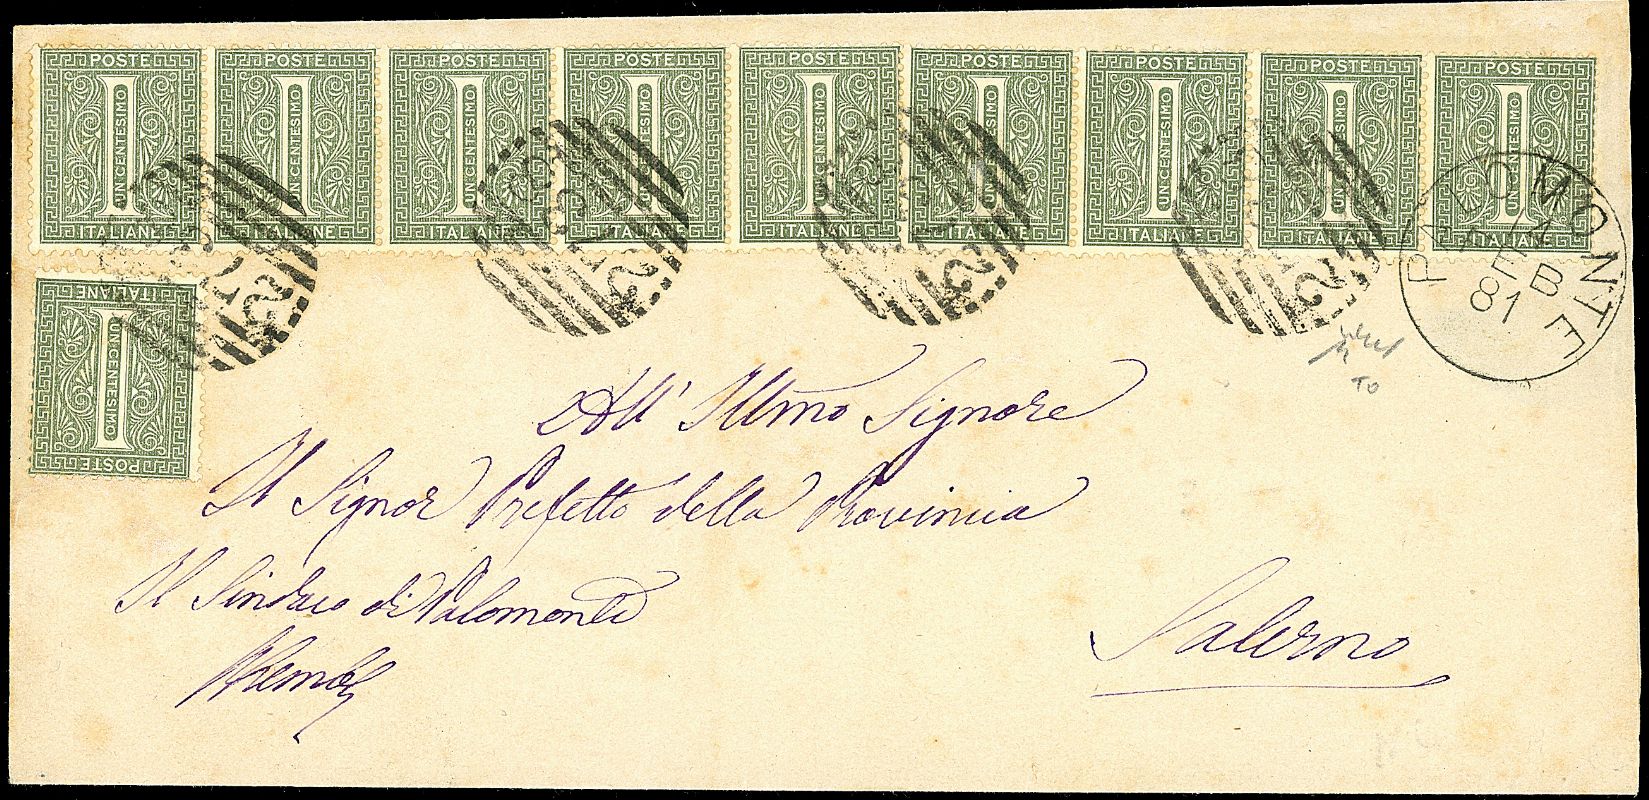 POSTE POSTE POSTE POSTE POSTE POSTE POSTE POSTE POSTE
1 1 1 1 1 1 1 1 1
UN CENTESIMO UN CENTESIMO UN CENTESIMO UN CENTESIMO UN CENTESIMO UN CENTESIMO UN CENTESIMO UN CENTESIMO UN CENTESIMO
ITALIANE ITALIANE ITALIANE ITALIANE ITALIANE ITALIANE ITALIANE ITALIANE ITALIANE
PALOMONTE
14
81
POSTE
1
UN CENTESIMO
ITALIANE
TO
All' Illmo Signore
Il Signor Prefetto della Provincia
Il Sindaco di Palomonte
Salerno